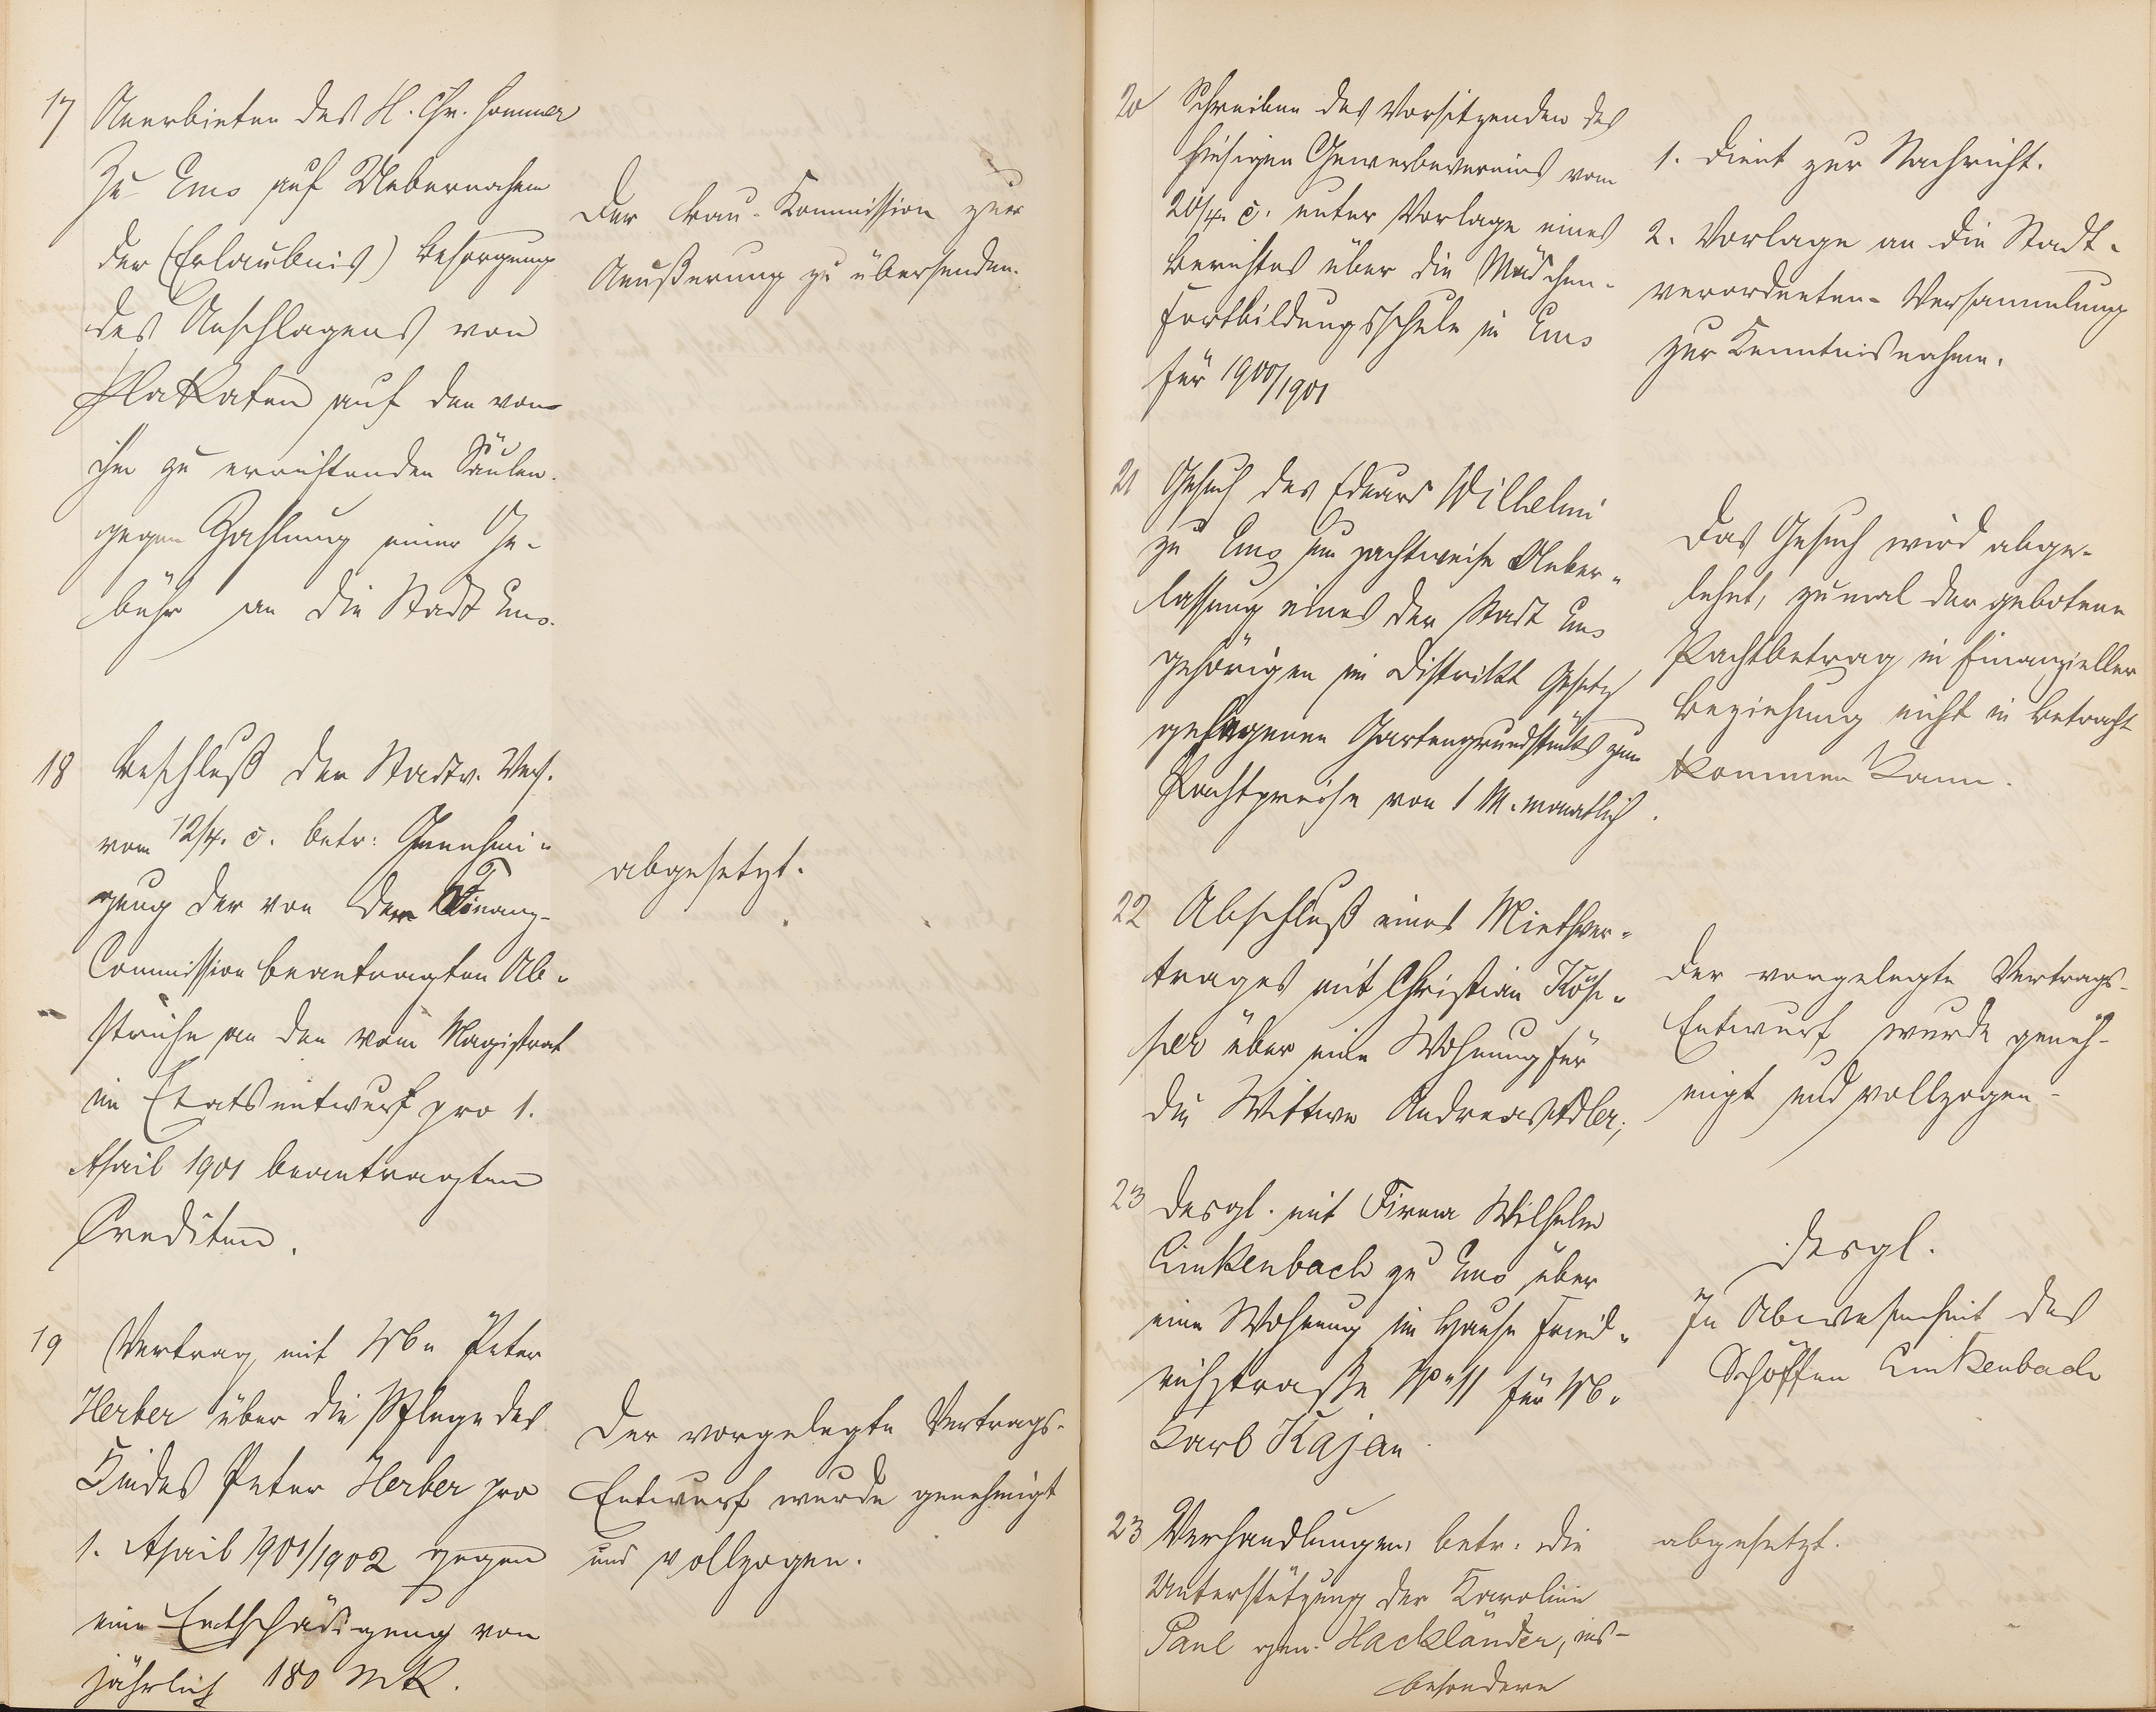 17 Anerbieten des H. Chr. Sommer
zu Ems auf Uebernahme
der (Erlaubnis) Besorgung
des Anschlagens von
Plakaten auf den von
ihm zu errichtenden Säulen
gegen Zahlung einer Ge-
bühr an die Stadt Ems.
Der Bau-Kommission zur
Aeußerung zu übersenden.
18 Beschluß der Stadtv. Vers.
vom 12/4. c. betr: Genehmi-
gung der von der Finanz-
Commission beantragten Ab-
striche an den vom Magistrat
im Etatsentwurf pro 1.
April 1901 beantragten
Crediten.
abgesetzt.
19 Vertrag mit Wb. Peter
Herber über die Pflege des
Kindes Peter Herber pro
1. April 1901/1902 gegen
eine Entschädigung von
jährlich 180 Mk.
Der vorgelegte Vertrags-
Entwurf wurde genehmigt
und vollzogen.
20 Schreiben des Vorsitzenden des
hiesigen Gewerbevereins vom
20/4. c. unter Vorlage eines
Berichtes über die Mädchen-
Fortbildungsschule in Ems
für 1900/1901
1. Dient zur Nachricht.
2. Vorlage an die Stadt-
verordneten-Versammlung
zur Kenntnisnahme.
21 Gesuch des Eduard Wilhelmi
zu Ems um pachtweise Ueber-
lassung eines der Stadt Ems
gehörigen im Distrikt
gelegenen Gartengrundstücks zum
Pachtpreise von 1 M. monatlich.
Das Gesuch wird abge-
lehnt, zumal der gebotene
Pachtbetrag in finanzieller
Beziehung nicht in Betracht
kommen kann.
22 Abschluß eines Miethver-
trages mit Christian
über eine Wohnung für
die Wittwe Andreas Adler;
Der vorgelegte Vertrags-
Entwurf wurde geneh-
migt und vollzogen.
23 desgl. mit Firma Wilhelm
Linkenbach zu Ems über
eine Wohnung im Hause Fried-
richstraße No 11 für Wb.
Karl Kajan
desgl.
In Abwesenheit des
Schöffen Linkenbach
23 Verhandlungen betr. die
Unterstützung der Karoline
Paul gen. Hackländer, ins-
besondere
abgesetzt.